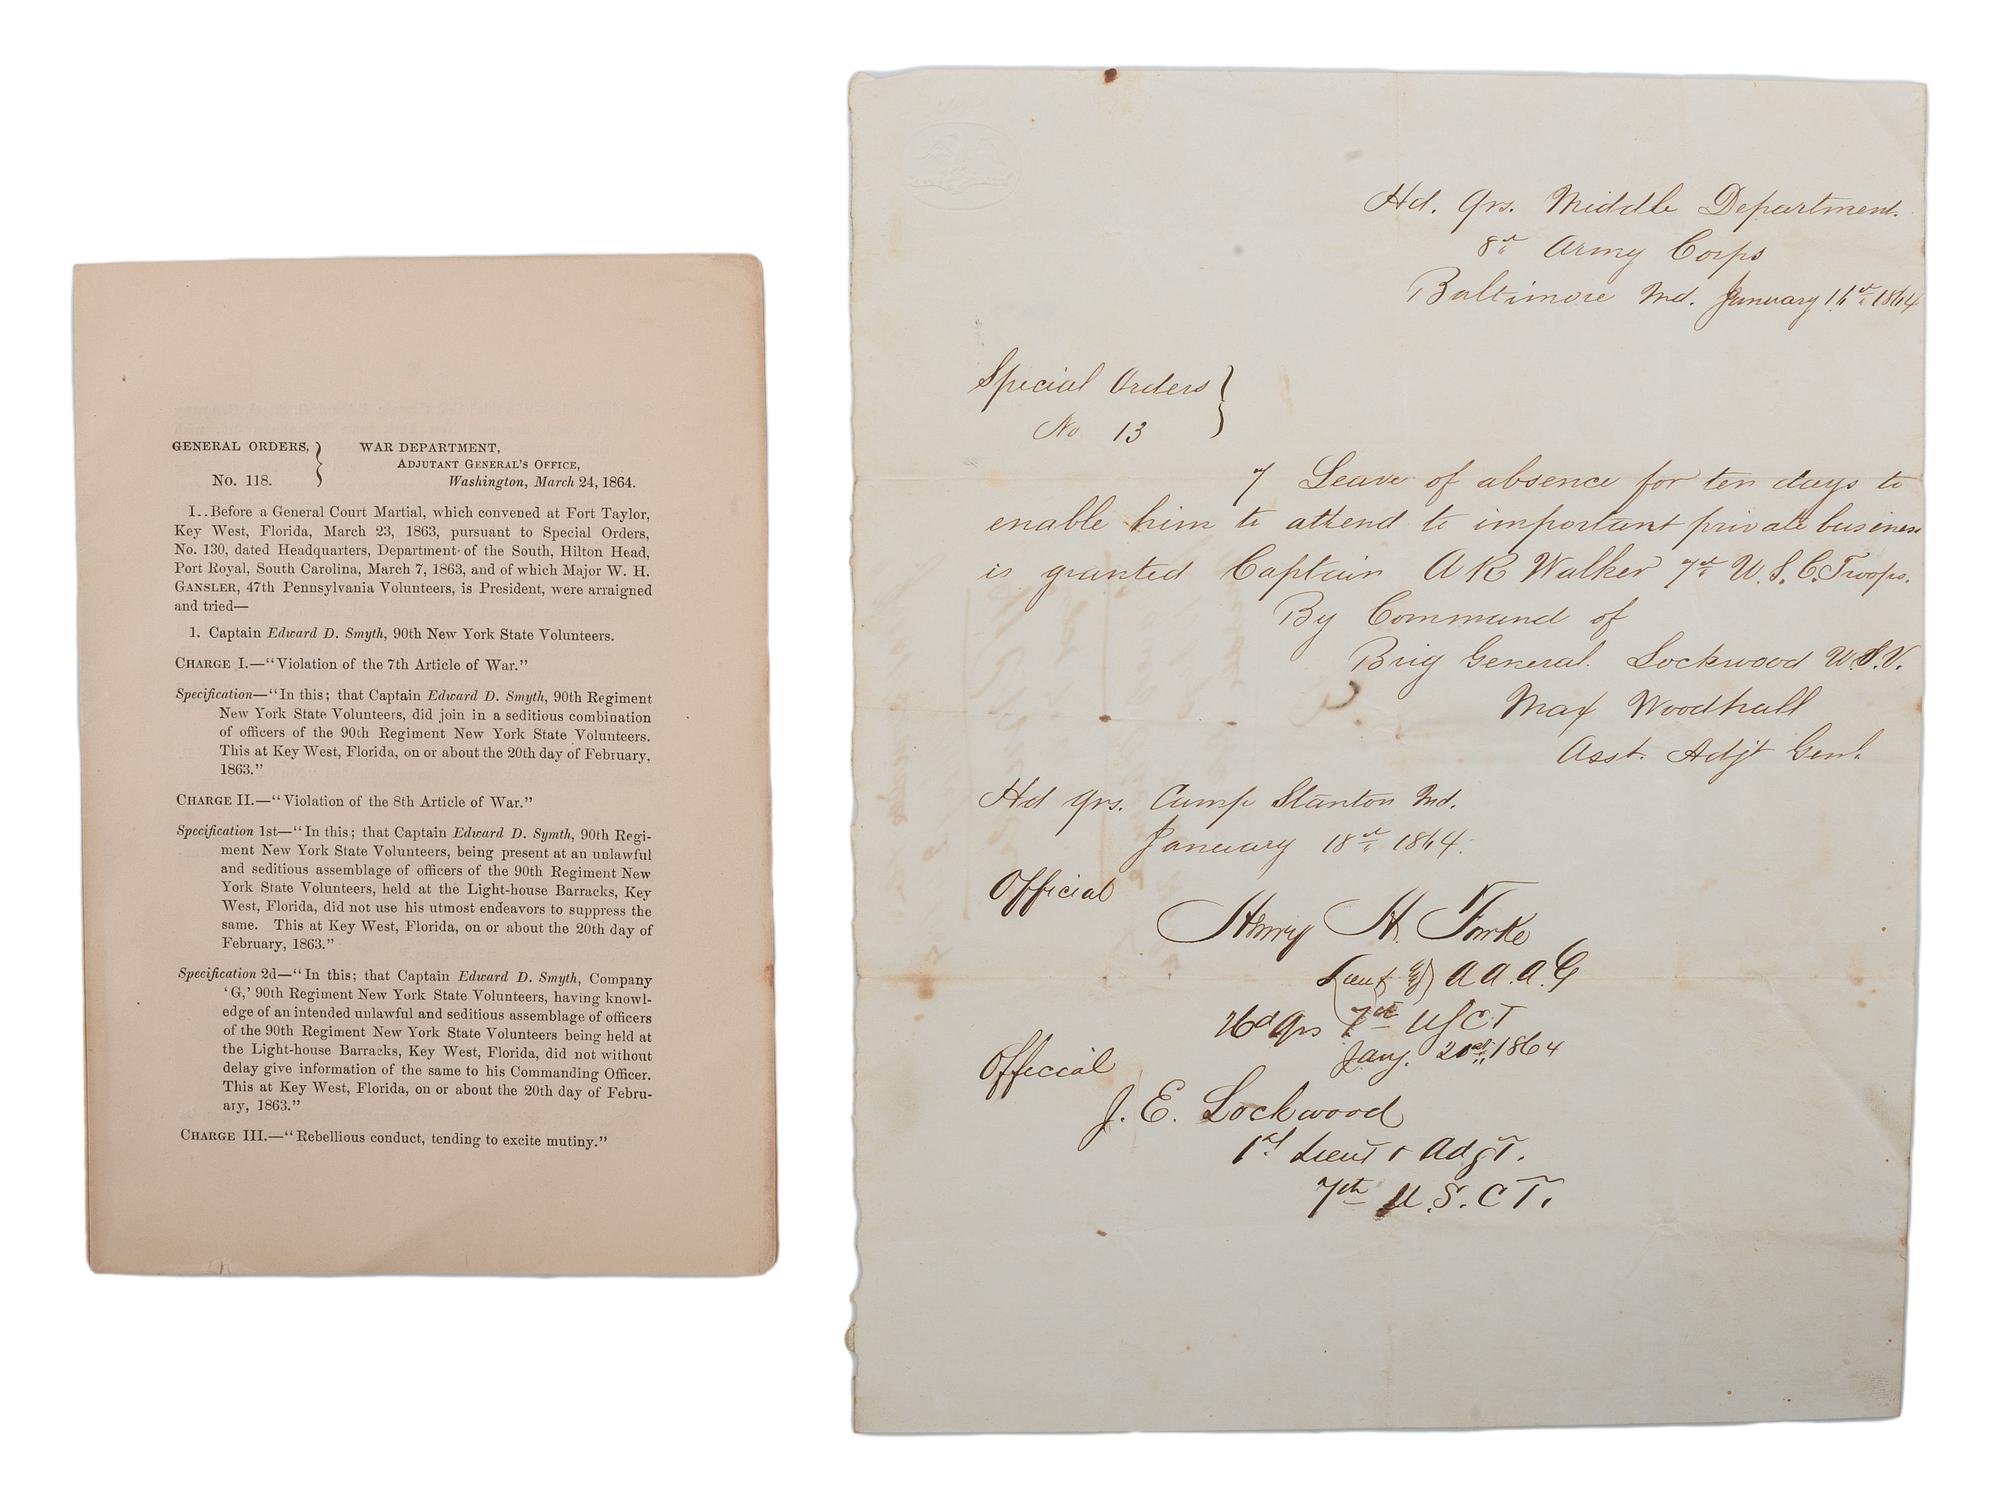 GENERAL ORDERS, } WAR DEPARTMENT,
ADJUTANT GENERAL'S OFFICE,
No. 118. Washington, March 24, 1864.
I..Before a General Court Martial, which convened at Fort Taylor,
Key West, Florida, March 23, 1863, pursuant to Special Orders,
No. 130, dated Headquarters, Department of the South, Hilton Head,
Port Royal, South Carolina, March 7, 1863, and of which Major W. H.
GANSLER, 47th Pennsylvania Volunteers, is President, were arraigned
and tried—
1. Captain Edward D. Smyth, 90th New York State Volunteers.
CHARGE I.—"Violation of the 7th Article of War."
Specification—"In this; that Captain Edward D. Smyth, 90th Regiment
New York State Volunteers, did join in a seditious combination
of officers of the 90th Regiment New York State Volunteers.
This at Key West, Florida, on or about the 20th day of February,
1863."
CHARGE II.—"Violation of the 8th Article of War."
Specification 1st—"In this; that Captain Edward D. Symth, 90th Regi-
ment New York State Volunteers, being present at an unlawful
and seditious assemblage of officers of the 90th Regiment New
York State Volunteers, held at the Light-house Barracks, Key
West, Florida, did not use his utmost endeavors to suppress the
same. This at Key West, Florida, on or about the 20th day of
February, 1863."
Specification 2d—"In this; that Captain Edward D. Smyth, Company
'G,' 90th Regiment New York State Volunteers, having knowl-
edge of an intended unlawful and seditious assemblage of officers
of the 90th Regiment New York State Volunteers being held at
the Light-house Barracks, Key West, Florida, did not without
delay give information of the same to his Commanding Officer.
This at Key West, Florida, on or about the 20th day of Febru-
ary, 1863."
CHARGE III.—"Rebellious conduct, tending to excite mutiny."
Hd. Qrs. Middle Department.
8th Army Corps
Baltimore Md. January 16th 1864
Special Orders }
No 13
7 Leave of absence for ten days to
enable him to attend to important private business
is granted Captain A R Walker 7th U.S.C.Troops.
By Command of
Brig General. Lockwood U.S.V.
Max Woodhall
Asst. Adjt Genl.
Hd qrs. Camp Stanton Md.
January 18th 1864.
Official
Henry H.
Lieut A A.A.G
Hd Qrs 7th USCT
Jany. 1864
Official
J. E. Lockwood
1st Lieut + Adjt.
7th U.S.C T.